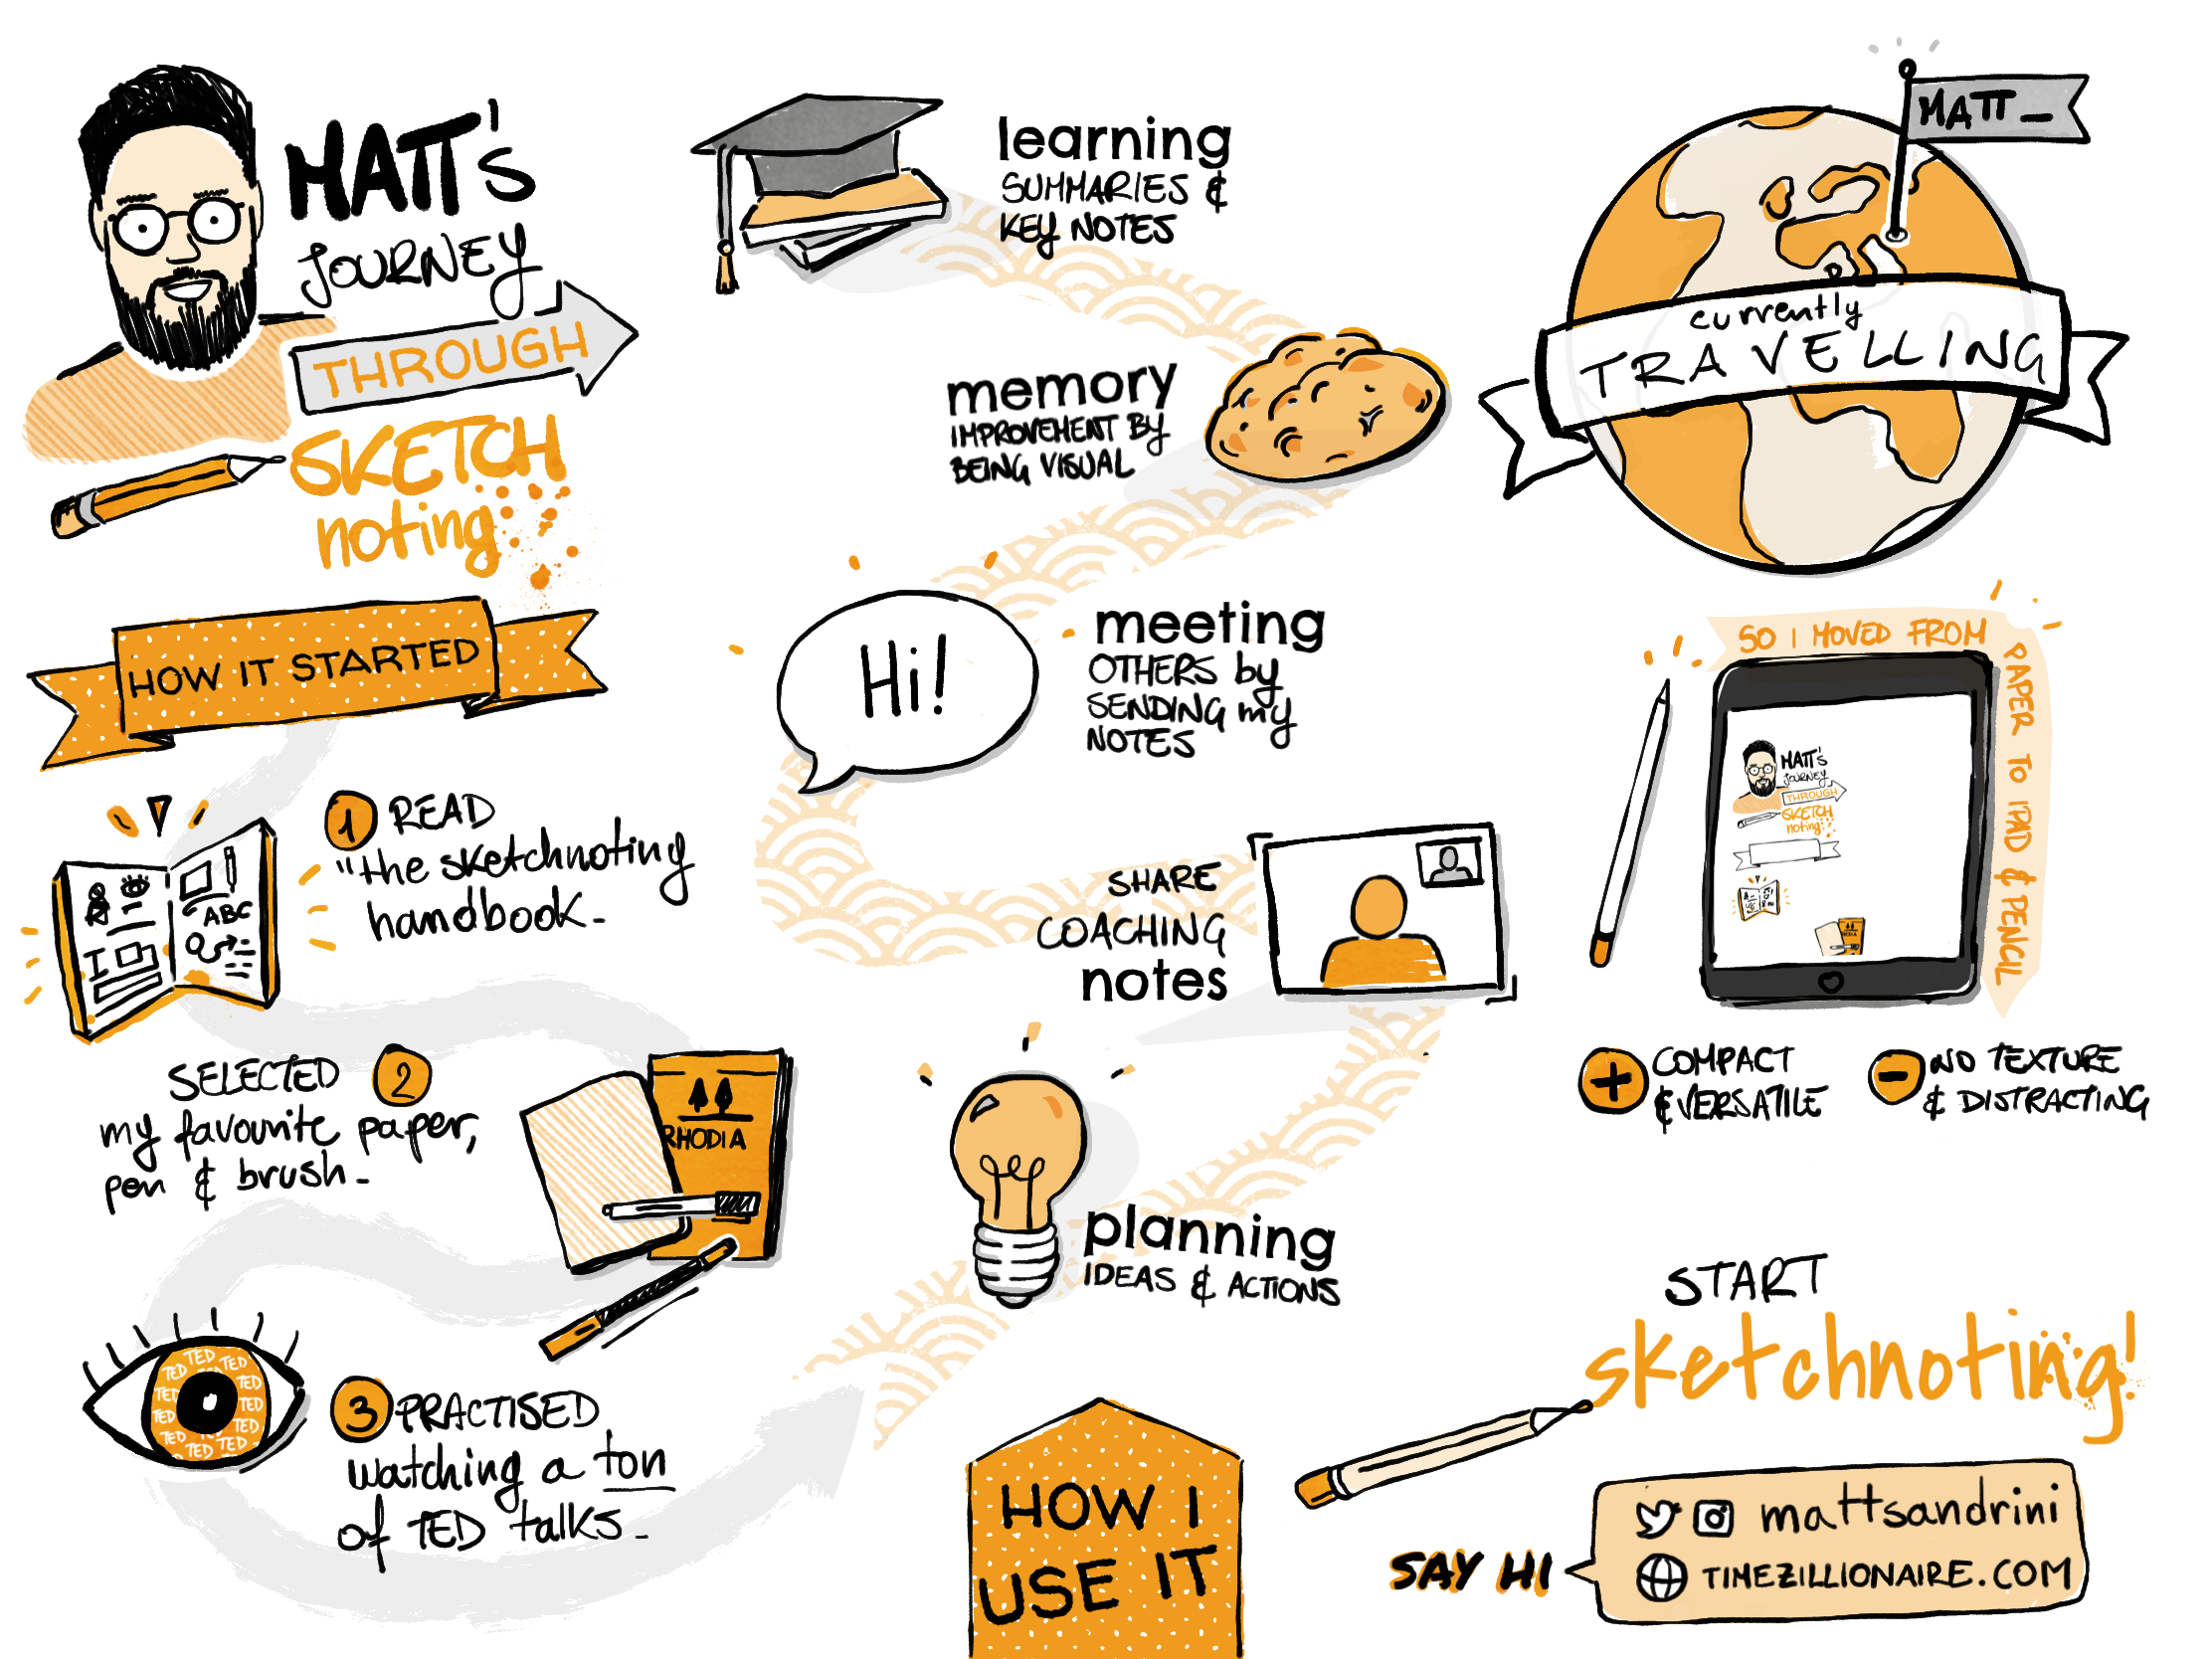 MATT's
JOURNEY
THROUGH
SKETCH
noting
HOW IT STARTED
1 READ
"the sketchnoting
handbook-
ABC
SELECTED 2
my favourite paper,
pen & brush-
RHODIA
TED TED TED
TED TED
TED TED
TED TED
TED TED
TED TED TED
3 PRACTISED
watching a ton
of TED talks-
learning
SUMMARIES &
KEY NOTES
memory
IMPROVEMENT BY
BEING VISUAL
Hi!
meeting
OTHERS by
SENDING my
NOTES
SHARE
COACHING
notes
planning
IDEAS & ACTIONS
HOW I
USE IT
MATT_
currently
TRAVELLING
SO I MOVED FROM
PAPER TO IPAD & PENCIL
MATT's
JOURNEY
THROUGH
SKETCH
noting
+ COMPACT
& VERSATILE
- NO TEXTURE
& DISTRACTING
START
sketchnoting!
SAY HI
mattsandrini
TIMEZILLIONAIRE.COM